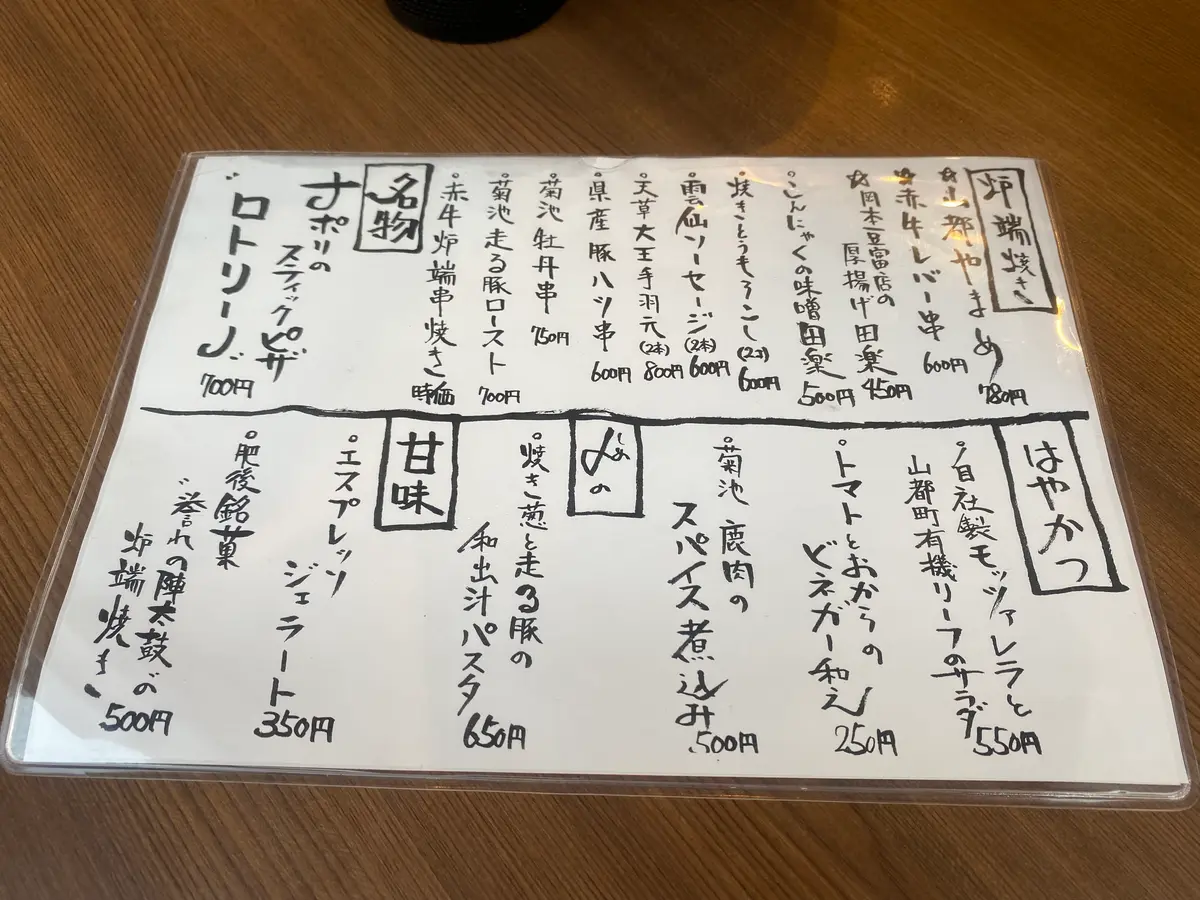 炉端焼き
☆山都やまめ 780円
☆赤牛レバー串 600円
☆岡本豆富店の
厚揚げ田楽 450円
・こんにゃくの味噌田楽 500円
・焼きとうもろこし(2コ) 600円
・雲仙ソーセージ(2本) 600円
・天草大王手羽元(2本) 800円
・県産豚ハツ串 600円
・菊池牡丹串 750円
・菊池走る豚ロースト 700円
・赤牛炉端串焼き 時価
名物
ナポリの
スティックピザ
〝ロトリーノ〟 700円
はやかつ
・自社製モッツァレラと
山都町有機リーフのサラダ 550円
・トマトとおからの
ビネガー和え 250円
・菊池 鹿肉の
スパイス煮込み 500円
〆の
しめ
・焼き葱と走る豚の
和出汁パスタ 650円
甘味
・エスプレッソ
ジェラート 350円
・肥後銘菓
〝誉れの陣太鼓〟の
炉端焼き 500円